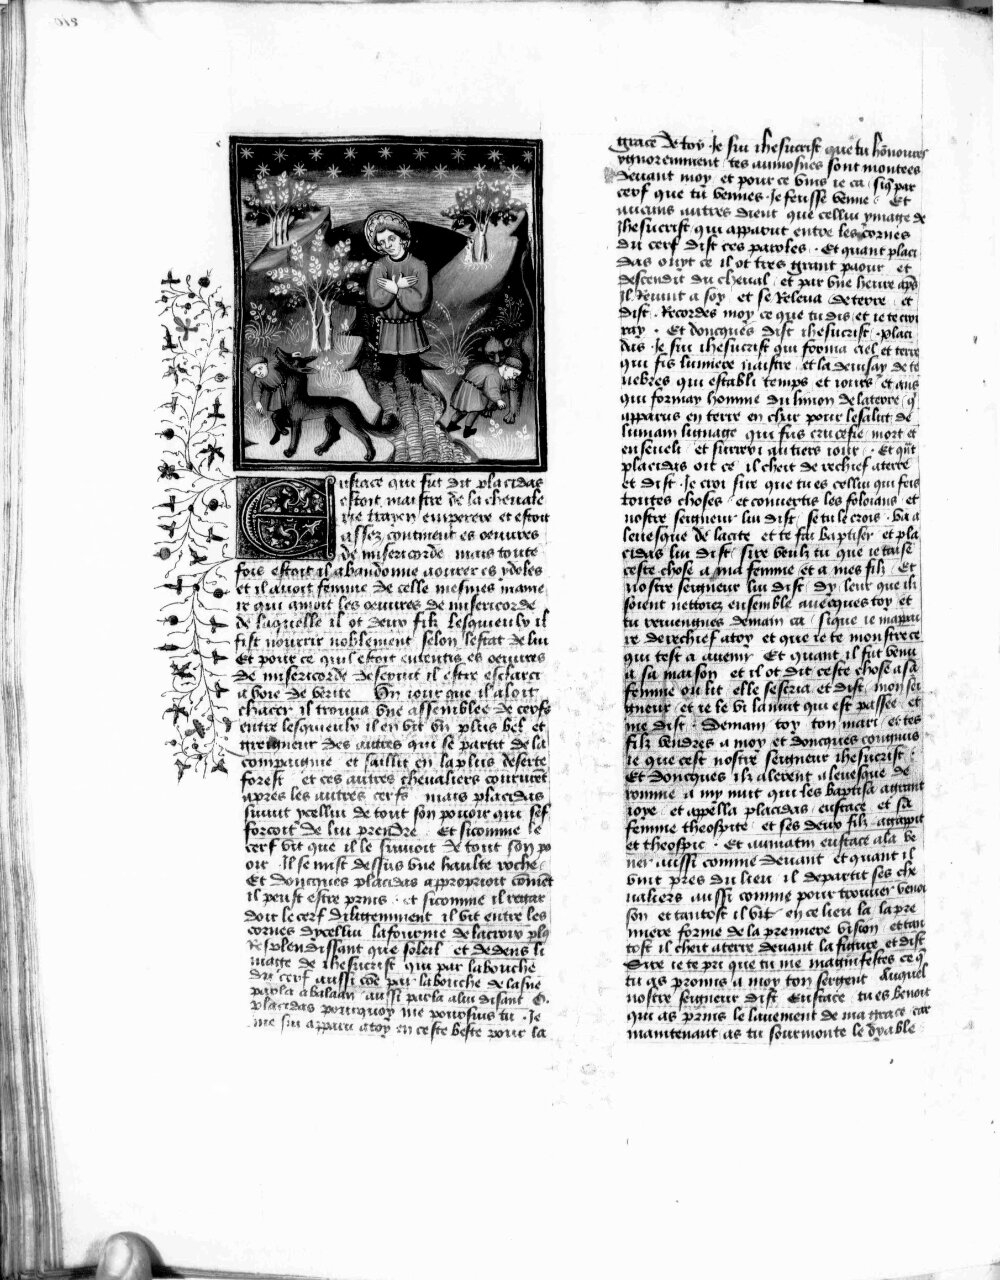 Eustace qui fut dit placidas
estoit maistre de la cheuale
rie trayen emperere et estoit
assez continuent es oeuures
de misericorde mais toute
fois estoit il abandonne aourer es ydoles
et il auoit femme de celle mesmes manie
re qui amoit les oeuures de misericorde
de laquelle il ot deux filz lesqueulx il
fist nourrir noblement selon lestat de lui
Et pour ce quil estoit ententis es oeuures
de misericorde desseruit il estre esclarci
a voie de verite Un iour que il aloit
chacer il trouua vne assemblee de cerfs
entre lesqueulx il en vit vn plus bel et
greigneur des autres qui se partit de la
compaignie et saillit en la plus deserte
forest et ces autres cheualiers coururent
apres les autres cerfs mais placidas
suiuit ycellui de tout son pouoir qui sef
forcoit de lui prendre Et sicomme le
cerf vit que il le suiuoit de tout son po
oir Il se mist dessus vne haulte roche
Et doncques placidas approprioit coment
il peust estre prins et sicomme il regar
doit le cerf diligemment il vit entre les
cornes dycellui la fourme de la croix plus
Resplendissant que soleil et dedens li
mage de ihesucrist qui par la bouche
du cerf aussi come par la bouche de lasne
parla a balaan aussi parla a lui disant O
placidas pourquoy me poursuis tu Je
me sui apparu a toy en ceste beste pour la
grace de toy Je sui ihesucrist que tu honnoures
ygnoremment tes aumosnes sont montees
deuant moy et pour ce vins ie ca siq par
cerf que tu vennes Je feusse venne Et
aucuns autres dient que cellui ymage de
Jhesucrist qui apparut entre les cornes
du cerf dist ces paroles Et quant placi
das ouyt ce il ot tres grant paour et
descendit du cheual et par vne heure apres
Il Reuint a soy et se Releua de terre et
dist Recordes moy ce que tu dis et ie te croi
ray Et doncques dist ihesucrist placi
das Je sui ihesucrist qui forma ciel et terre
qui fis lumiere naistre et la deuisay de te
nebres qui establi temps et iours et ans
qui formay homme du limon de la terre q
apparus en terre en char pour le salut de
lumain lignage qui fus crucefie mort et
enseueli et surrexi au tiers iour Et qnt
placidas oit ce il cheit de rechief a terre
et dist Je croi sire que tu es cellui qui feis
toutes choses et conuertis les foloians et
nostre seigneur lui dist se tu le crois va a
leuesque de la cite et te fai baptiser et pla
cidas lui dist sire veulz tu que ie taise
ceste chose a ma femme et a mes filz Et
nostre seigneur lui dist dy leur que ilz
soient nettoiez ensemble auecques toy et
tu reuiengnes demain ca sique ie mappai
re derechief a toy et que ie te monstre ce
qui test a auenir Et quant il fut venu
a sa maison et il ot dit ceste chose a sa
femme ou lit elle sescria et dist mon sei
gneur et ie le vi la nuit qui est passee et
me dist Demain toy ton mari et tes
filz vendres a moy et doncques congnuis
ie que cest nostre seigneur ihesucrist
Et doncques ilz alerent a leuesque de
romme a my nuit qui les baptisa a grant
ioye et appella placidas eustace et sa
femme theospite et ses deux filz agappit
et theospit Et au matin eustace ala ve
ner aussi comme deuant et quant il
vint pres du lieu il departit ses che
ualiers aussi comme pour trouuer venoi
son et tantost il vit en ce lieu la la pre
miere forme de la premiere vision et tan
tost il cheit a terre deuant la figure et dist
Sire ie te pri que tu me magnifestes ce q
tu as promis a moy ton sergent Auquel
nostre seigneur dist Eustace tu es benoit
qui as prins le lauement de ma grace car
maintenant as tu sourmonte le dyable